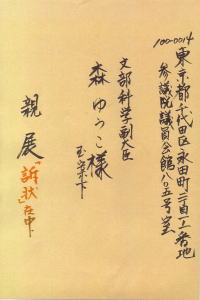 100-0014
東京都千代田区永田町二丁目一ー一番地
参議院議員会館八〇五号室
文部科学副大臣
森ゆうこ様
玉案下
親展
「訴状」在中